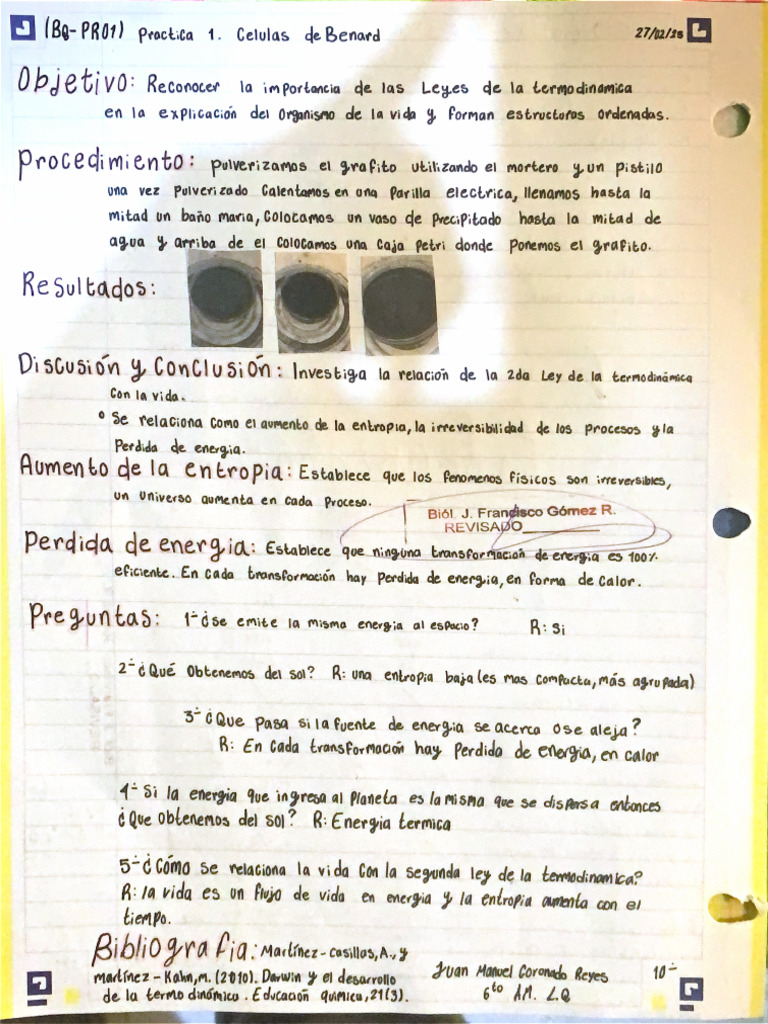 (BQ-PR01) Practica 1. Celulas de Benard 27/02/25
Objetivo: Reconocer la importancia de las Leyes de la termodinamica
en la explicación del Organismo de la vida y forman estructuras ordenadas.
Procedimiento: Pulverizamos el grafito utilizando el mortero y un Pistilo
una vez Pulverizado Calentamos en una Parilla electrica, llenamos hasta la
mitad un baño maria, Colocamos un vaso de Precipitado hasta la mitad de
agua y arriba de el Colocamos una Caja Petri donde Ponemos el grafito.
Resultados:
Discusión y Conclusión: Investiga la relación de la 2da Ley de la termodinámica
Con la vida.
° Se relaciona como el aumento de la entropia, la irreversibilidad de los Procesos y la
Perdida de energia.
Aumento de la entropia: Establece que los fenomenos físicos son irreversibles,
un Universo aumenta en cada Proceso.
Biól. J. Francisco Gómez R.
REVISADO
Perdida de energia: Establece que ninguna transformación de energia es 100%
eficiente. En cada transformación hay Perdida de energia, en forma de Calor.
Preguntas: 1.- ¿Se emite la misma energia al espacio? R: Si
2.- ¿Qué Obtenemos del sol? R: una entropia baja (es mas compacta, más agrupada)
3.- ¿Que Pasa si la fuente de energia se acerca o se aleja?
R: En Cada transformación hay Perdida de energia, en calor
4.- Si la energia que ingresa al Planeta es la misma que se dispersa entonces
¿Que obtenemos del sol? R: Energia termica
5.- ¿Cómo se relaciona la vida Con la segunda ley de la termodinamica?
R: la vida es un flujo de vida en energia y la entropia aumenta con el
tiempo.
Bibliografia: Martínez-Casillas, A., y
martínez-Kahn, m. (2010). Darwin y el desarrollo
de la termodinámica. Educación quimica, 21(3).
Juan Manuel Coronado Reyes
6to AM. L.Q
10.-